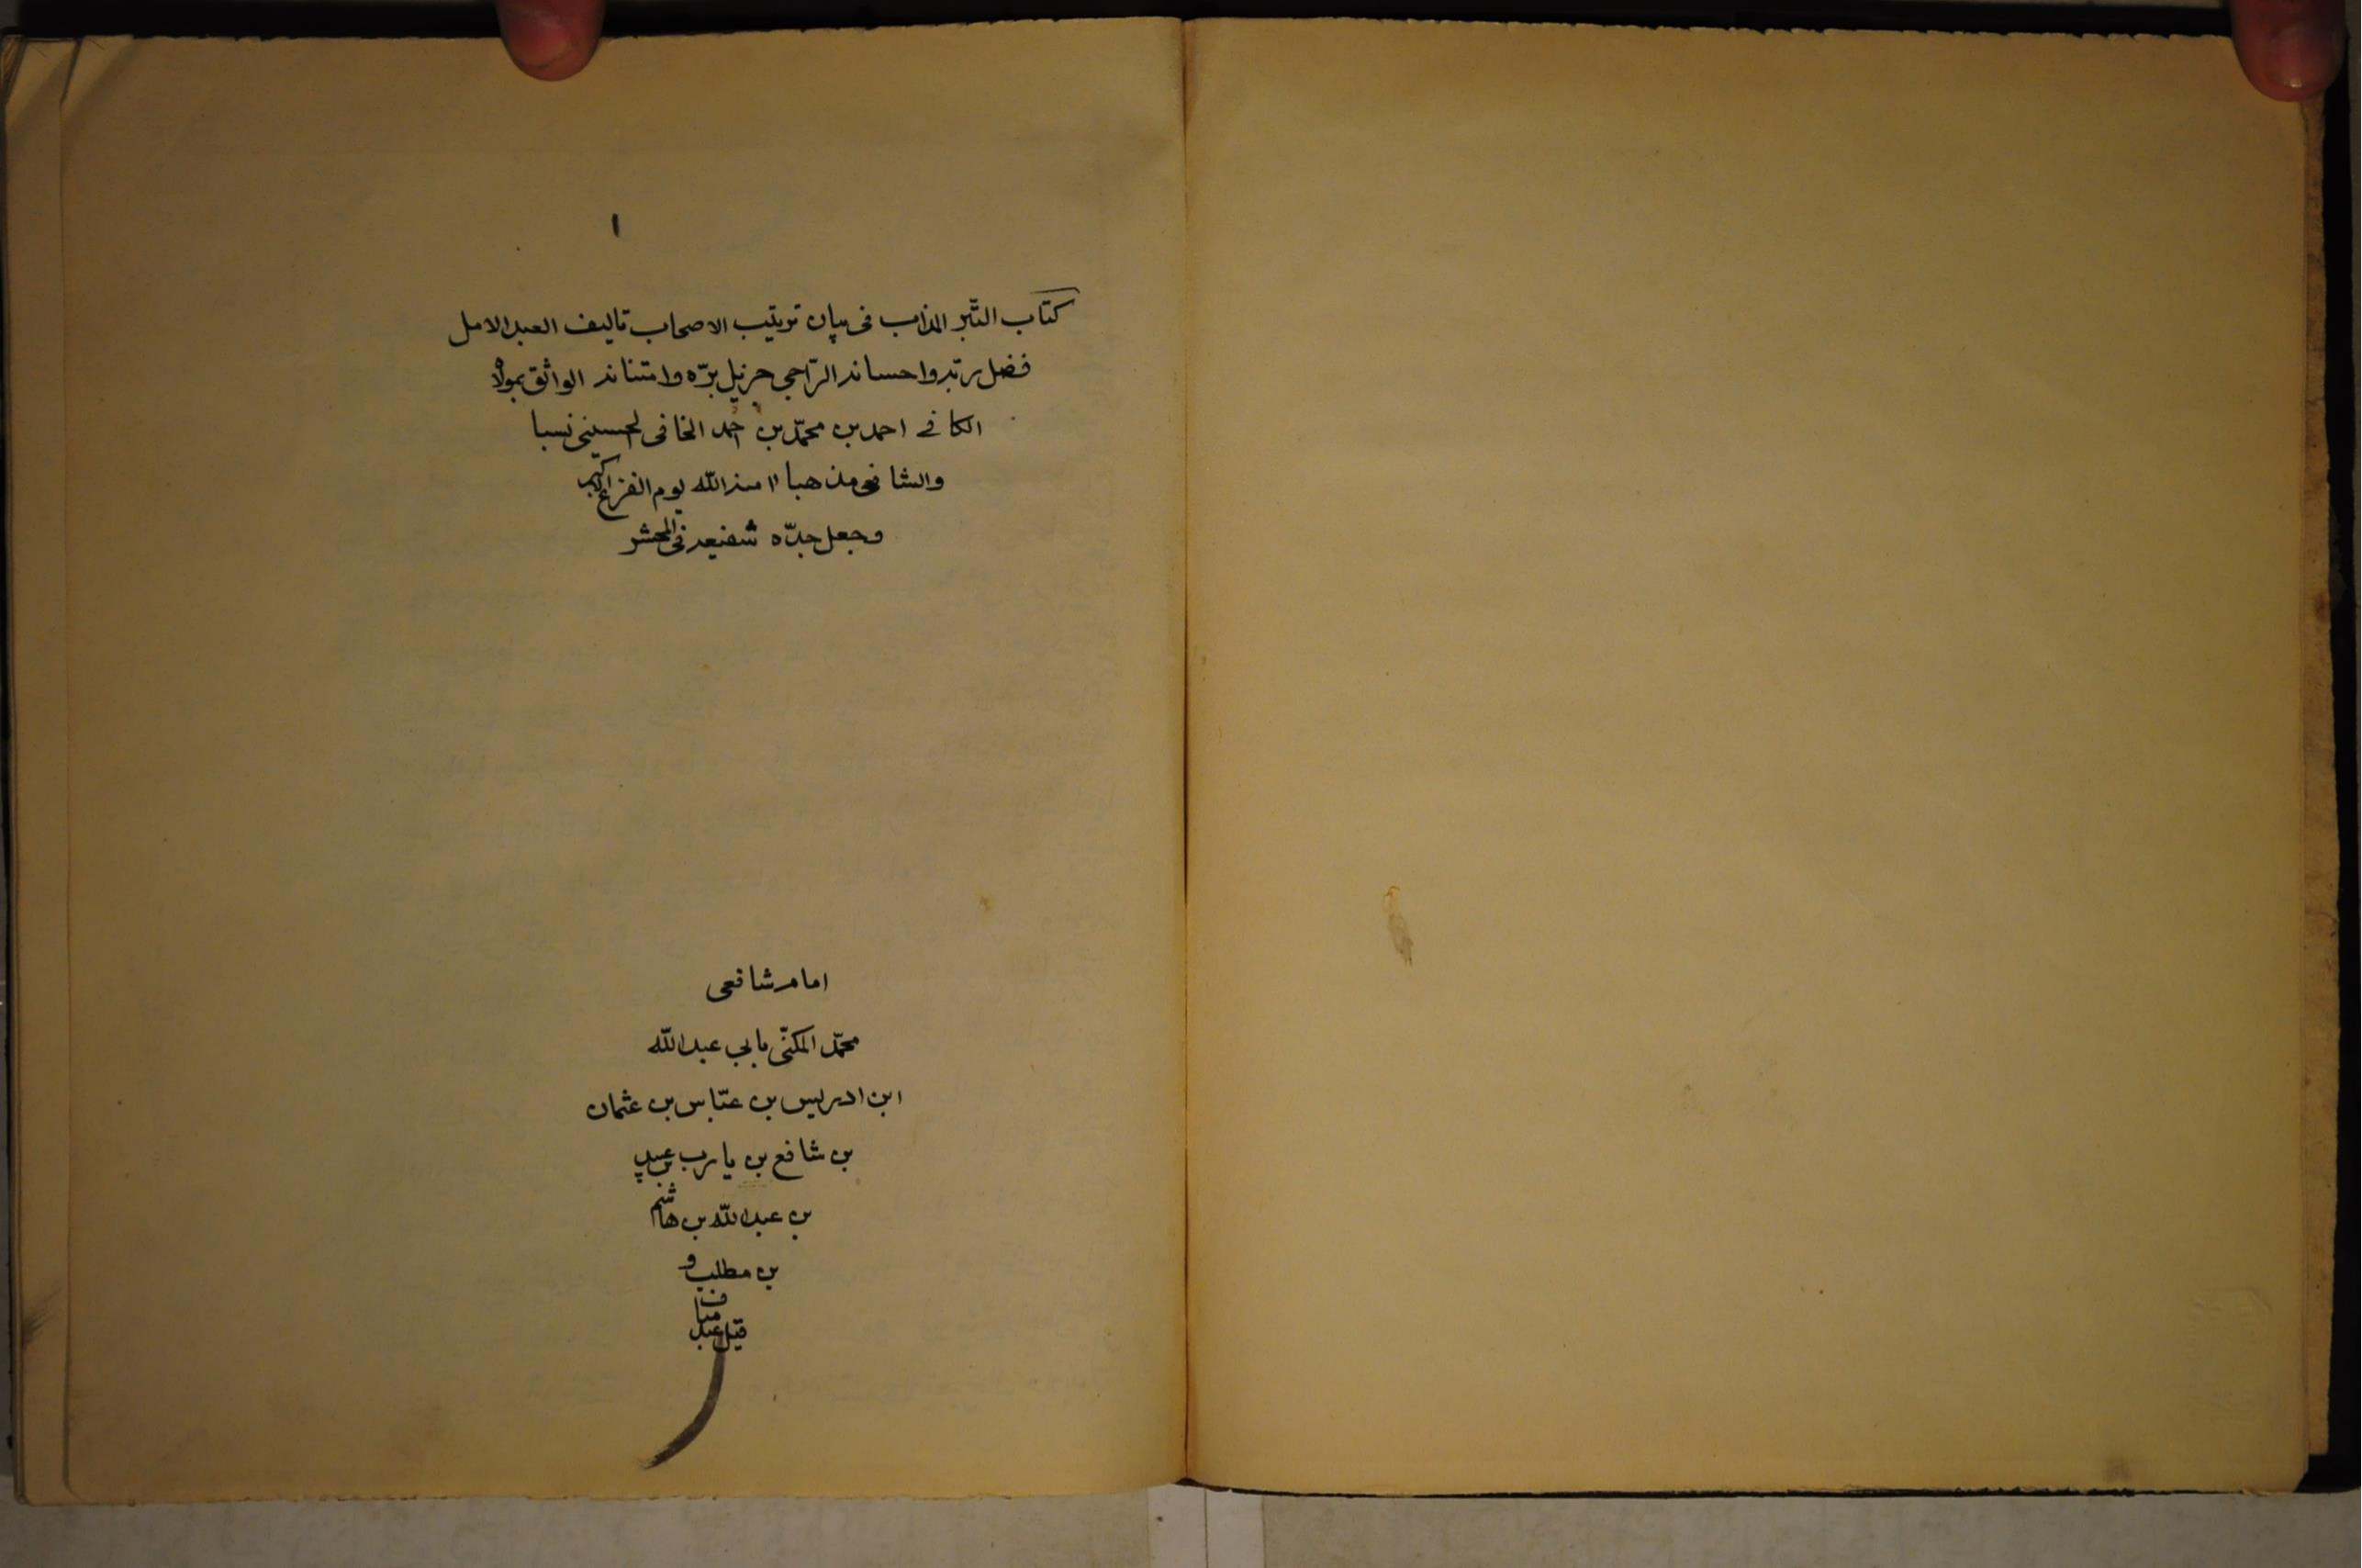 ١
كتاب التّبر المذاب فى بيان ترتيب الاصحاب تاليف العبد الامل
فضل ربّه واحسانه الرّاجى جزيل برّه وامتنانه الواثق بمولاه
الكافى احمد بن محمّد بن احمد الخافى الحسينى نسبا
والشافعى مذهبا امنه اللّه يوم الفزع الاكبر
وجعل جدّه شفيعه فى المحشر
امام شافعى
محمّد المكنّى بابى عبد اللّه
ابن ادريس بن عبّاس بن عثمان
بن شافع بن يارب بن عبيد
بن عبد اللّه بن هاشم
بن مطلب و
قيل عبد مناف